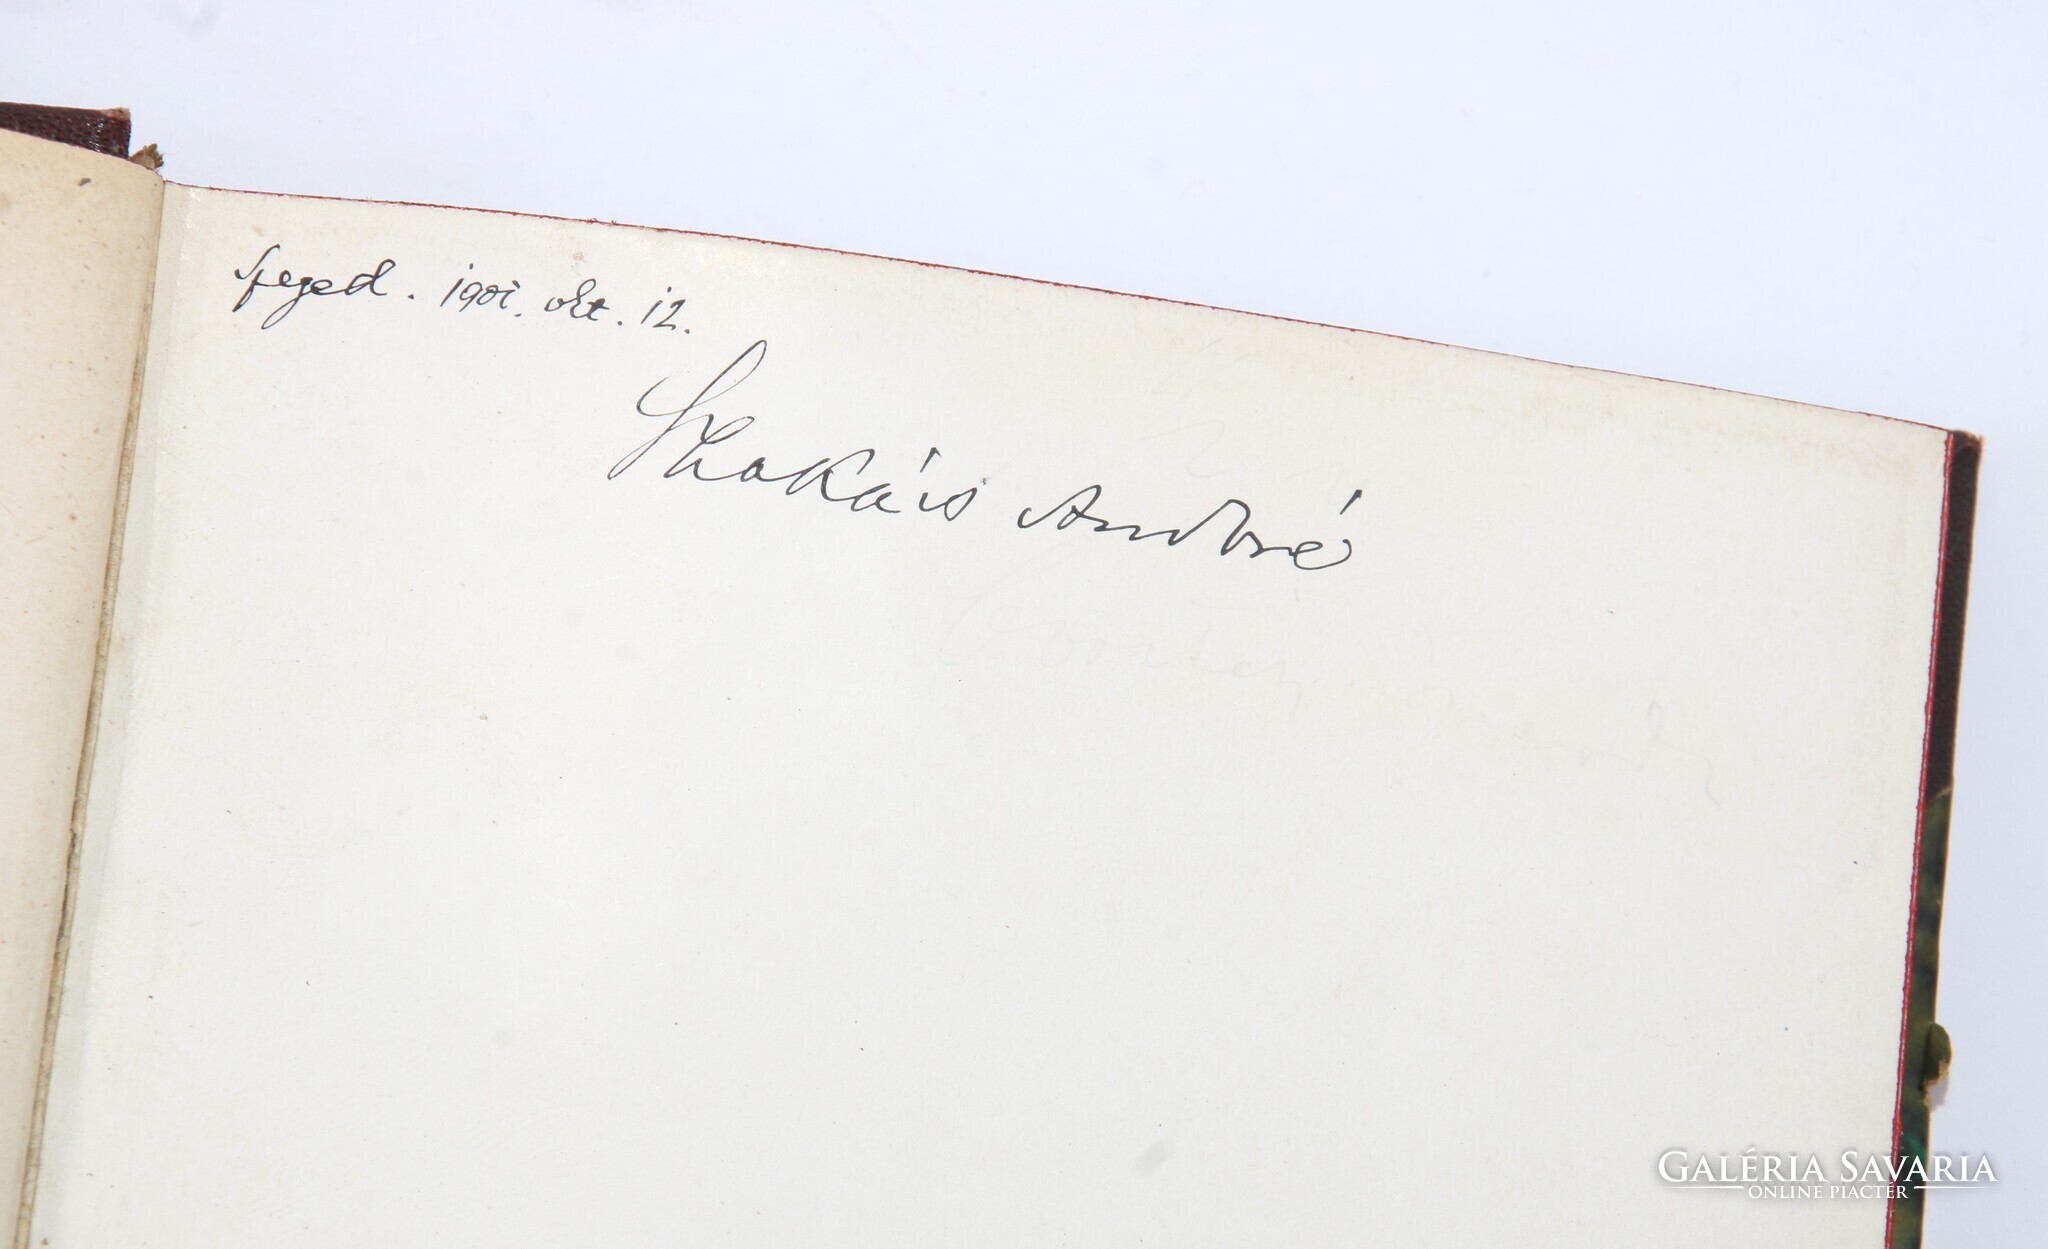 Szeged. 1901. okt. 12.
Szakáts Andoré
GALÉRIA SAVARIA
ONLINE PIACTÉR